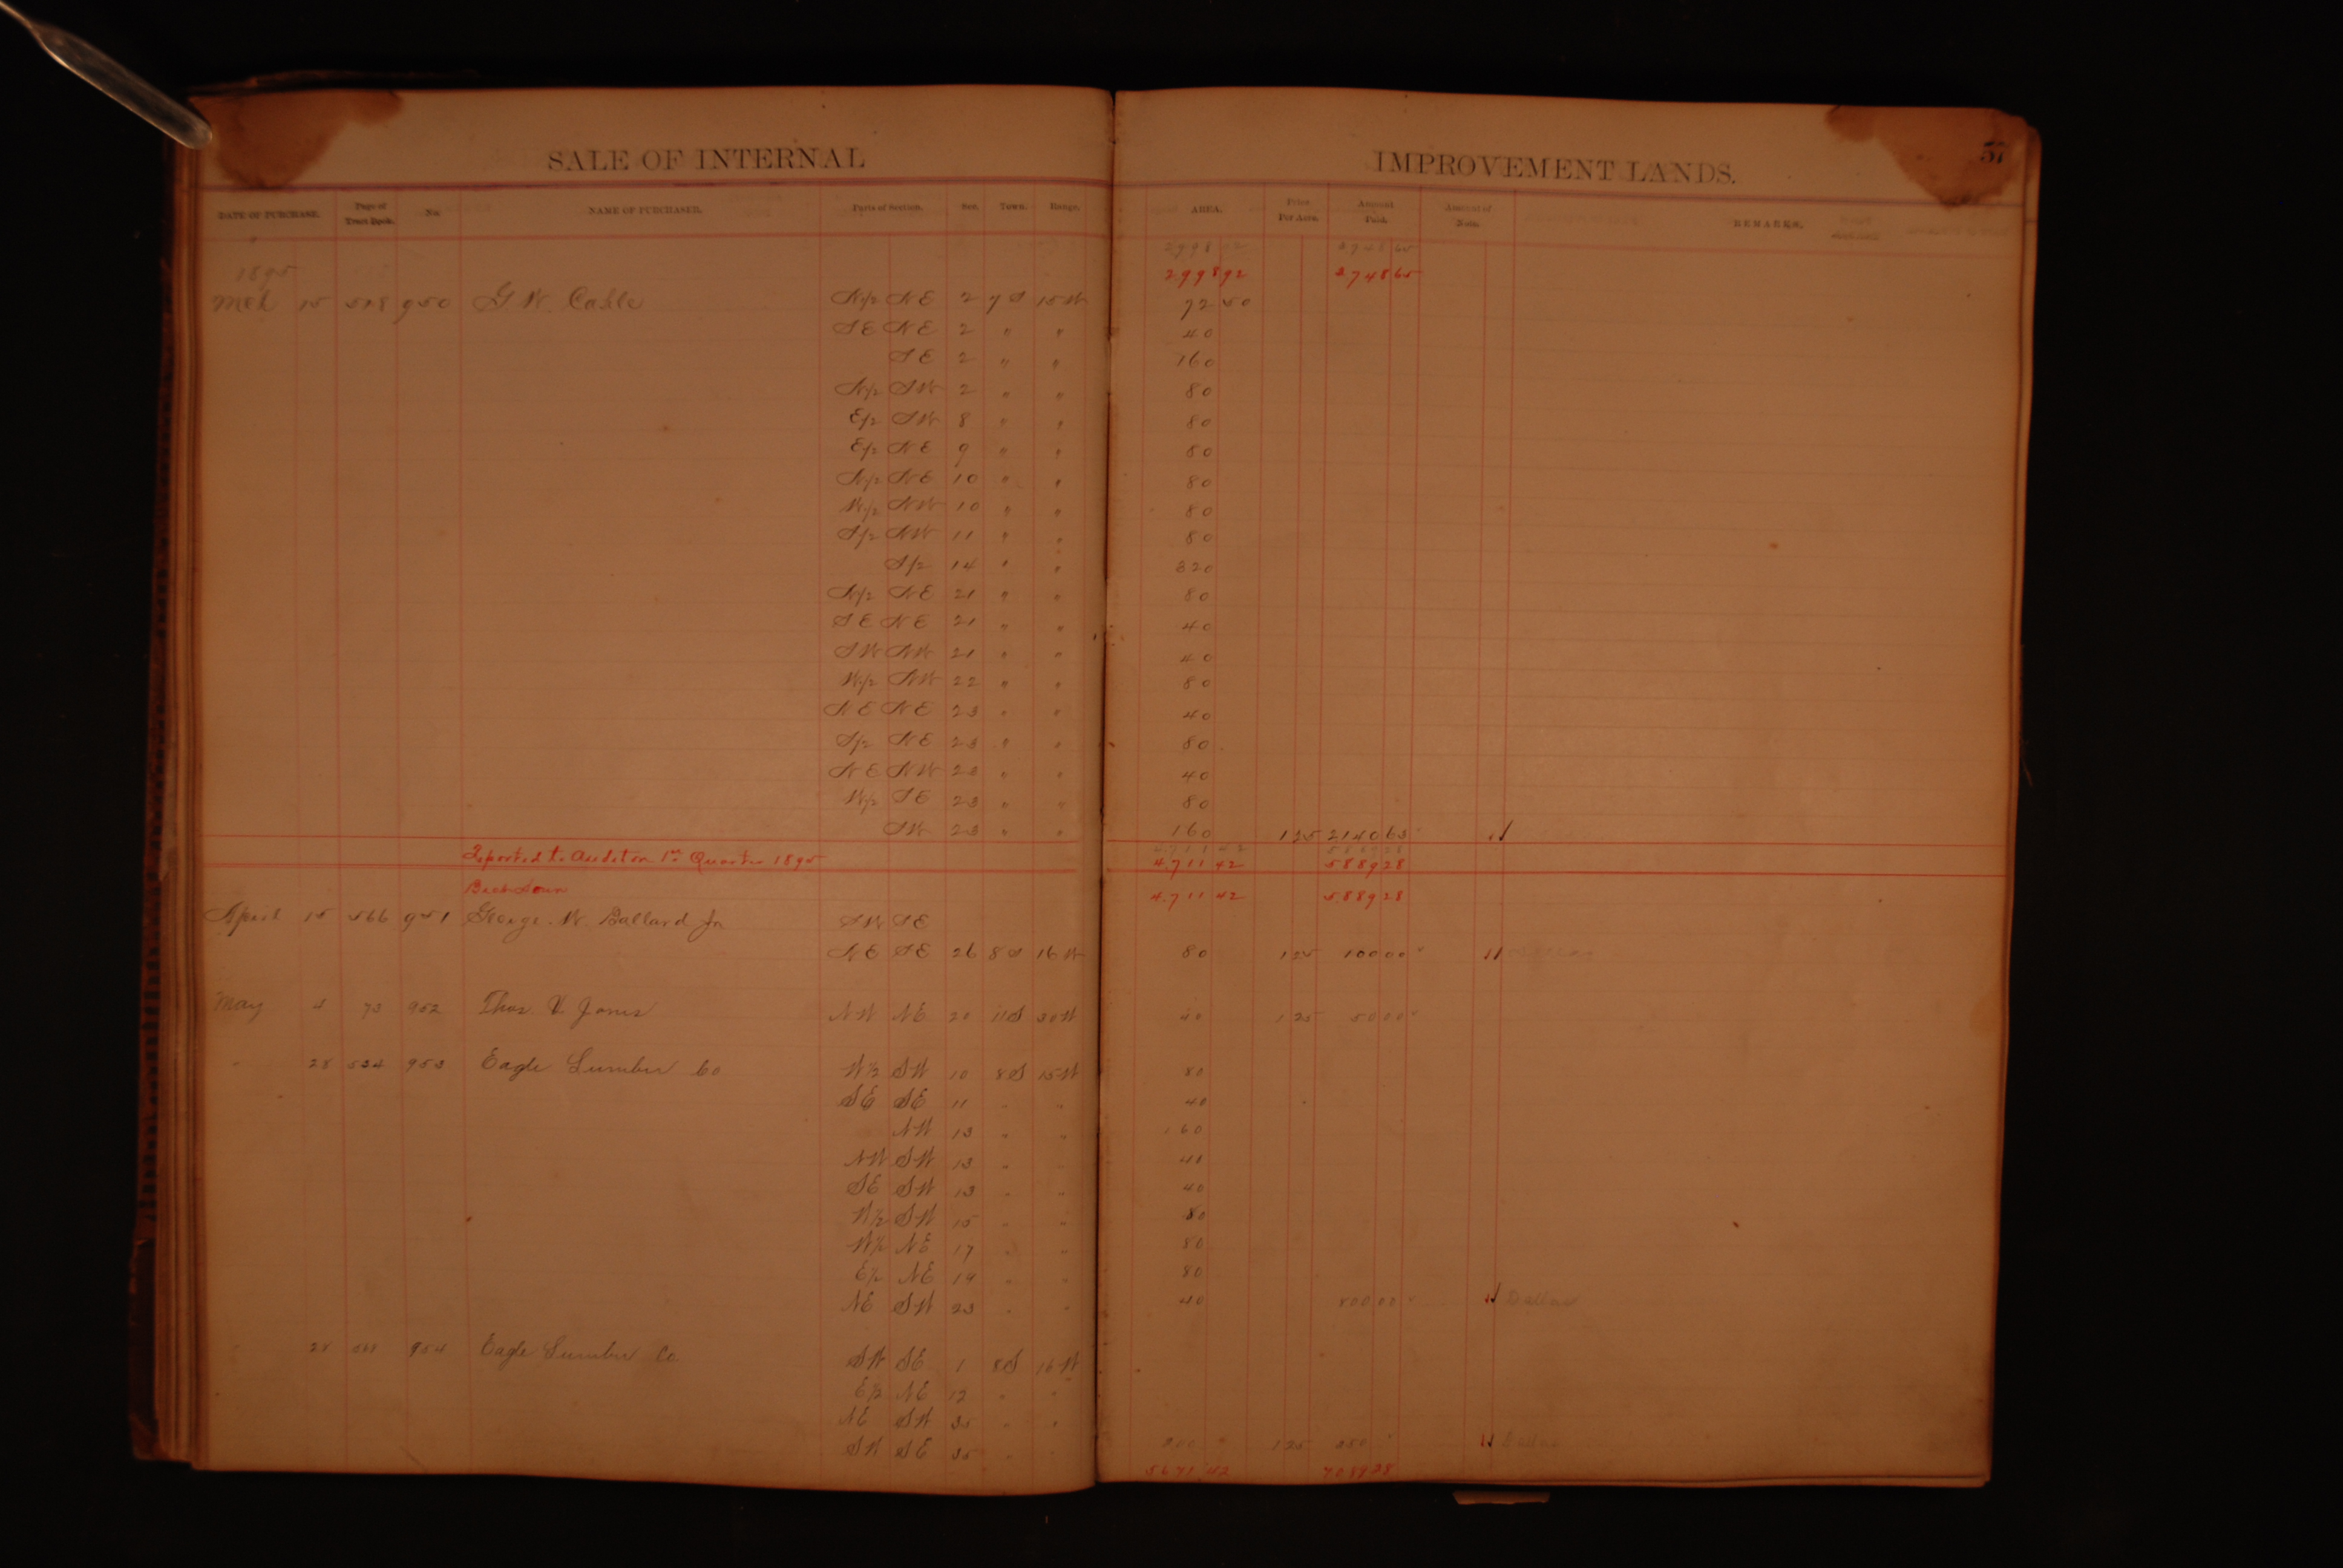 SALE OF INTERNAL IMPROVEMENT LANDS. 57
DATE OF PURCHASE. Page of Tract Book. No. NAME OF PURCHASER. Parts of Section. Sec. Town. Range. AREA. Price Per Acre. Amount Paid. Amount of Note. REMARKS.
2998 92 3748 65
1895 2998 92 3748 65
Mch 15 528 950 G W. Cable N/2 NE 2 7 S 15 W 72 50
SE NE 2 " " 40
SE 2 " " 160
N/2 SW 2 " " 80
E/2 SW 8 " " 80
E/2 NE 9 " " 80
N/2 NE 10 " " 80
W/2 NW 10 " " 80
S/2 NW 11 " " 80
S/2 14 " " 320
N/2 NE 21 " " 80
SE NE 21 " " 40
SW NW 21 " " 40
W/2 NW 22 " " 80
NE NE 23 " " 40
S/2 NE 23 " " 80
NE NW 23 " " 40
W/2 SE 23 " " 80
SW 23 " " 160 1 25 2140 63
4711 42 5889 28
Reported to Auditor 1st Quarter 1895 4711 42 5889 28
4711 42 5889 28
April 15 566 951 George. W. Ballard Jr SW SE
NE SE 26 8 S 16 W 80 1 25 100 00
May 4 73 952 Thos V Jones NW NE 20 11 S 30 W 40 1 25 50 00
" 28 534 953 Eagle Lumber Co W 1/2 SW 10 8 S 15 W 80
SE SE 11 " " 40
NW 13 " " 160
NW SW 13 " " 40
SE SW 13 " " 40
W 1/2 SW 15 " " 80
W 1/2 NE 17 " " 80
E 1/2 NE 19 " " 80
NE SW 23 " " 40 800 00 Dallas
" 28 954 Eagle Lumber Co. SW SE 1 8 S 16 W
E 1/2 NE 12 " "
NE SW 35 " "
SW SE 35 " " 200 1 25 250 Dallas
5671 42 7089 28